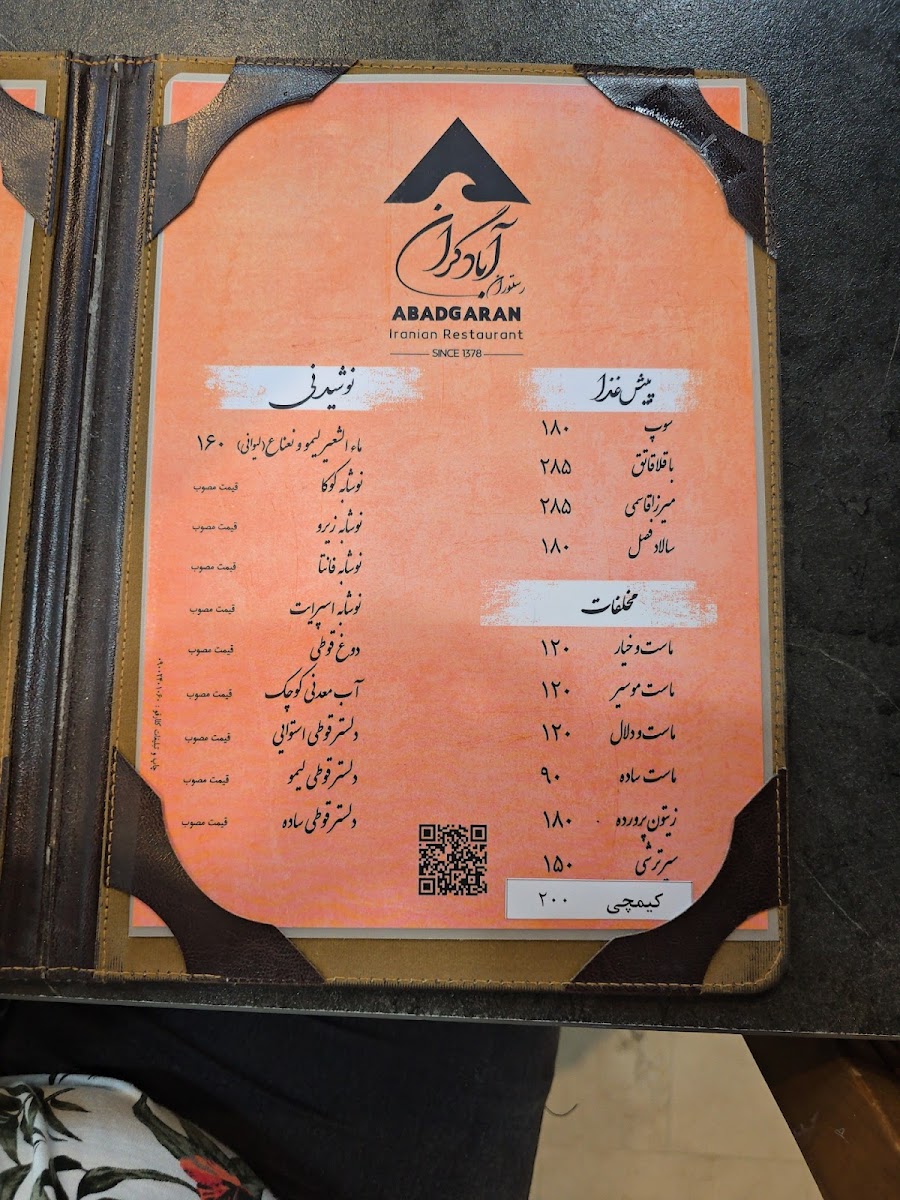 آبادگران
رستوران
ABADGARAN
Iranian Restaurant
SINCE 1378
پیش غذا
سوپ ۱۸۰
باقلاقاتق ۲۸۵
میرزاقاسمی ۲۸۵
سالاد فصل ۱۸۰
مخلفات
ماست و خیار ۱۲۰
ماست موسیر ۱۲۰
ماست و دلال ۱۲۰
ماست ساده ۹۰
زیتون پرورده ۱۸۰
سیر ترشی ۱۵۰
کیمچی ۲۰۰
نوشیدنی
ماء الشعیر لیمو و نعناع (لیوانی) ۱۶۰
نوشابه کوکا قیمت مصوب
نوشابه زیرو قیمت مصوب
نوشابه فانتا قیمت مصوب
نوشابه اسپرایت قیمت مصوب
دوغ قوطی قیمت مصوب
آب معدنی کوچک قیمت مصوب
دلستر قوطی استوایی قیمت مصوب
دلستر قوطی لیمو قیمت مصوب
دلستر قوطی ساده قیمت مصوب
چاپ و تبلیغات